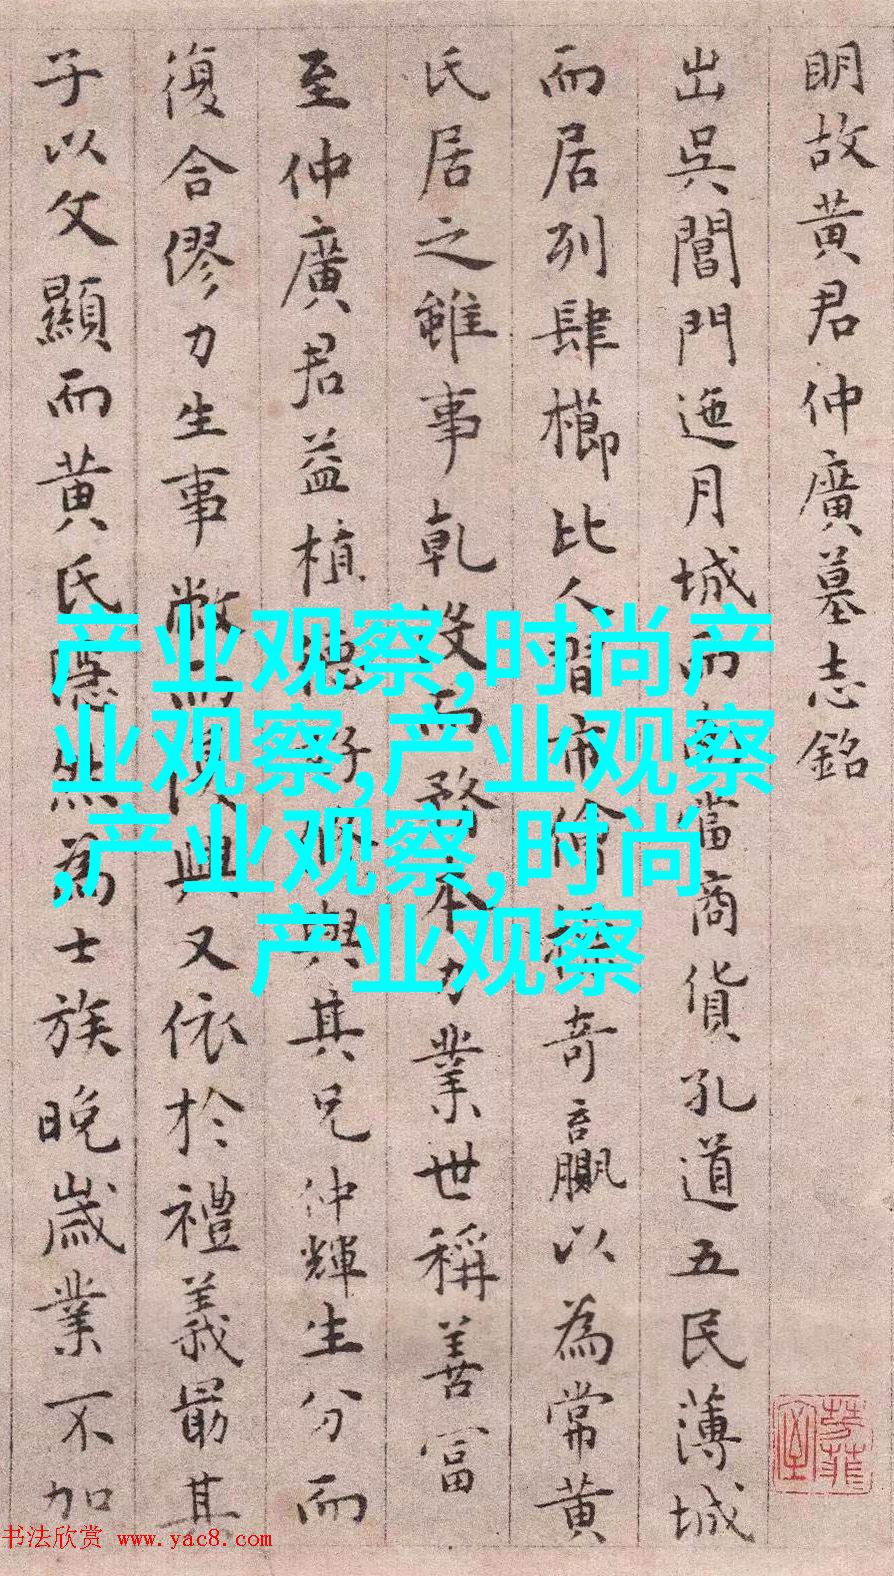 明故黄君仲廣墓志銘
出吳閶門迤月城而南當商貨孔道五民薄城
而居列肆櫛比人習市儈奇贏以為常黄
氏居之雖事乾没而務本力業世稱善富
至仲廣君益植德好脩與其兄仲輝生分而
復合僇力生事敝而復興又依於禮義最其
子以文顯而黄氏隱然為士族晚歲業不加
产业观察,时尚产
业观察,产业观察
,产业观察,时尚
产业观察
书法欣赏 www.yac8.com